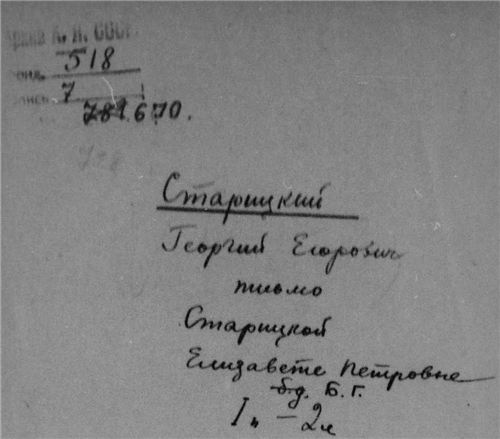 Архив А. Н. СССР
фонд. 518
опись. 7
781.670.
Старицкий
Георгий Егорович
письмо
Старицкой
Елизавете Петровне
б.д. Б.Г.
I п – 2 л